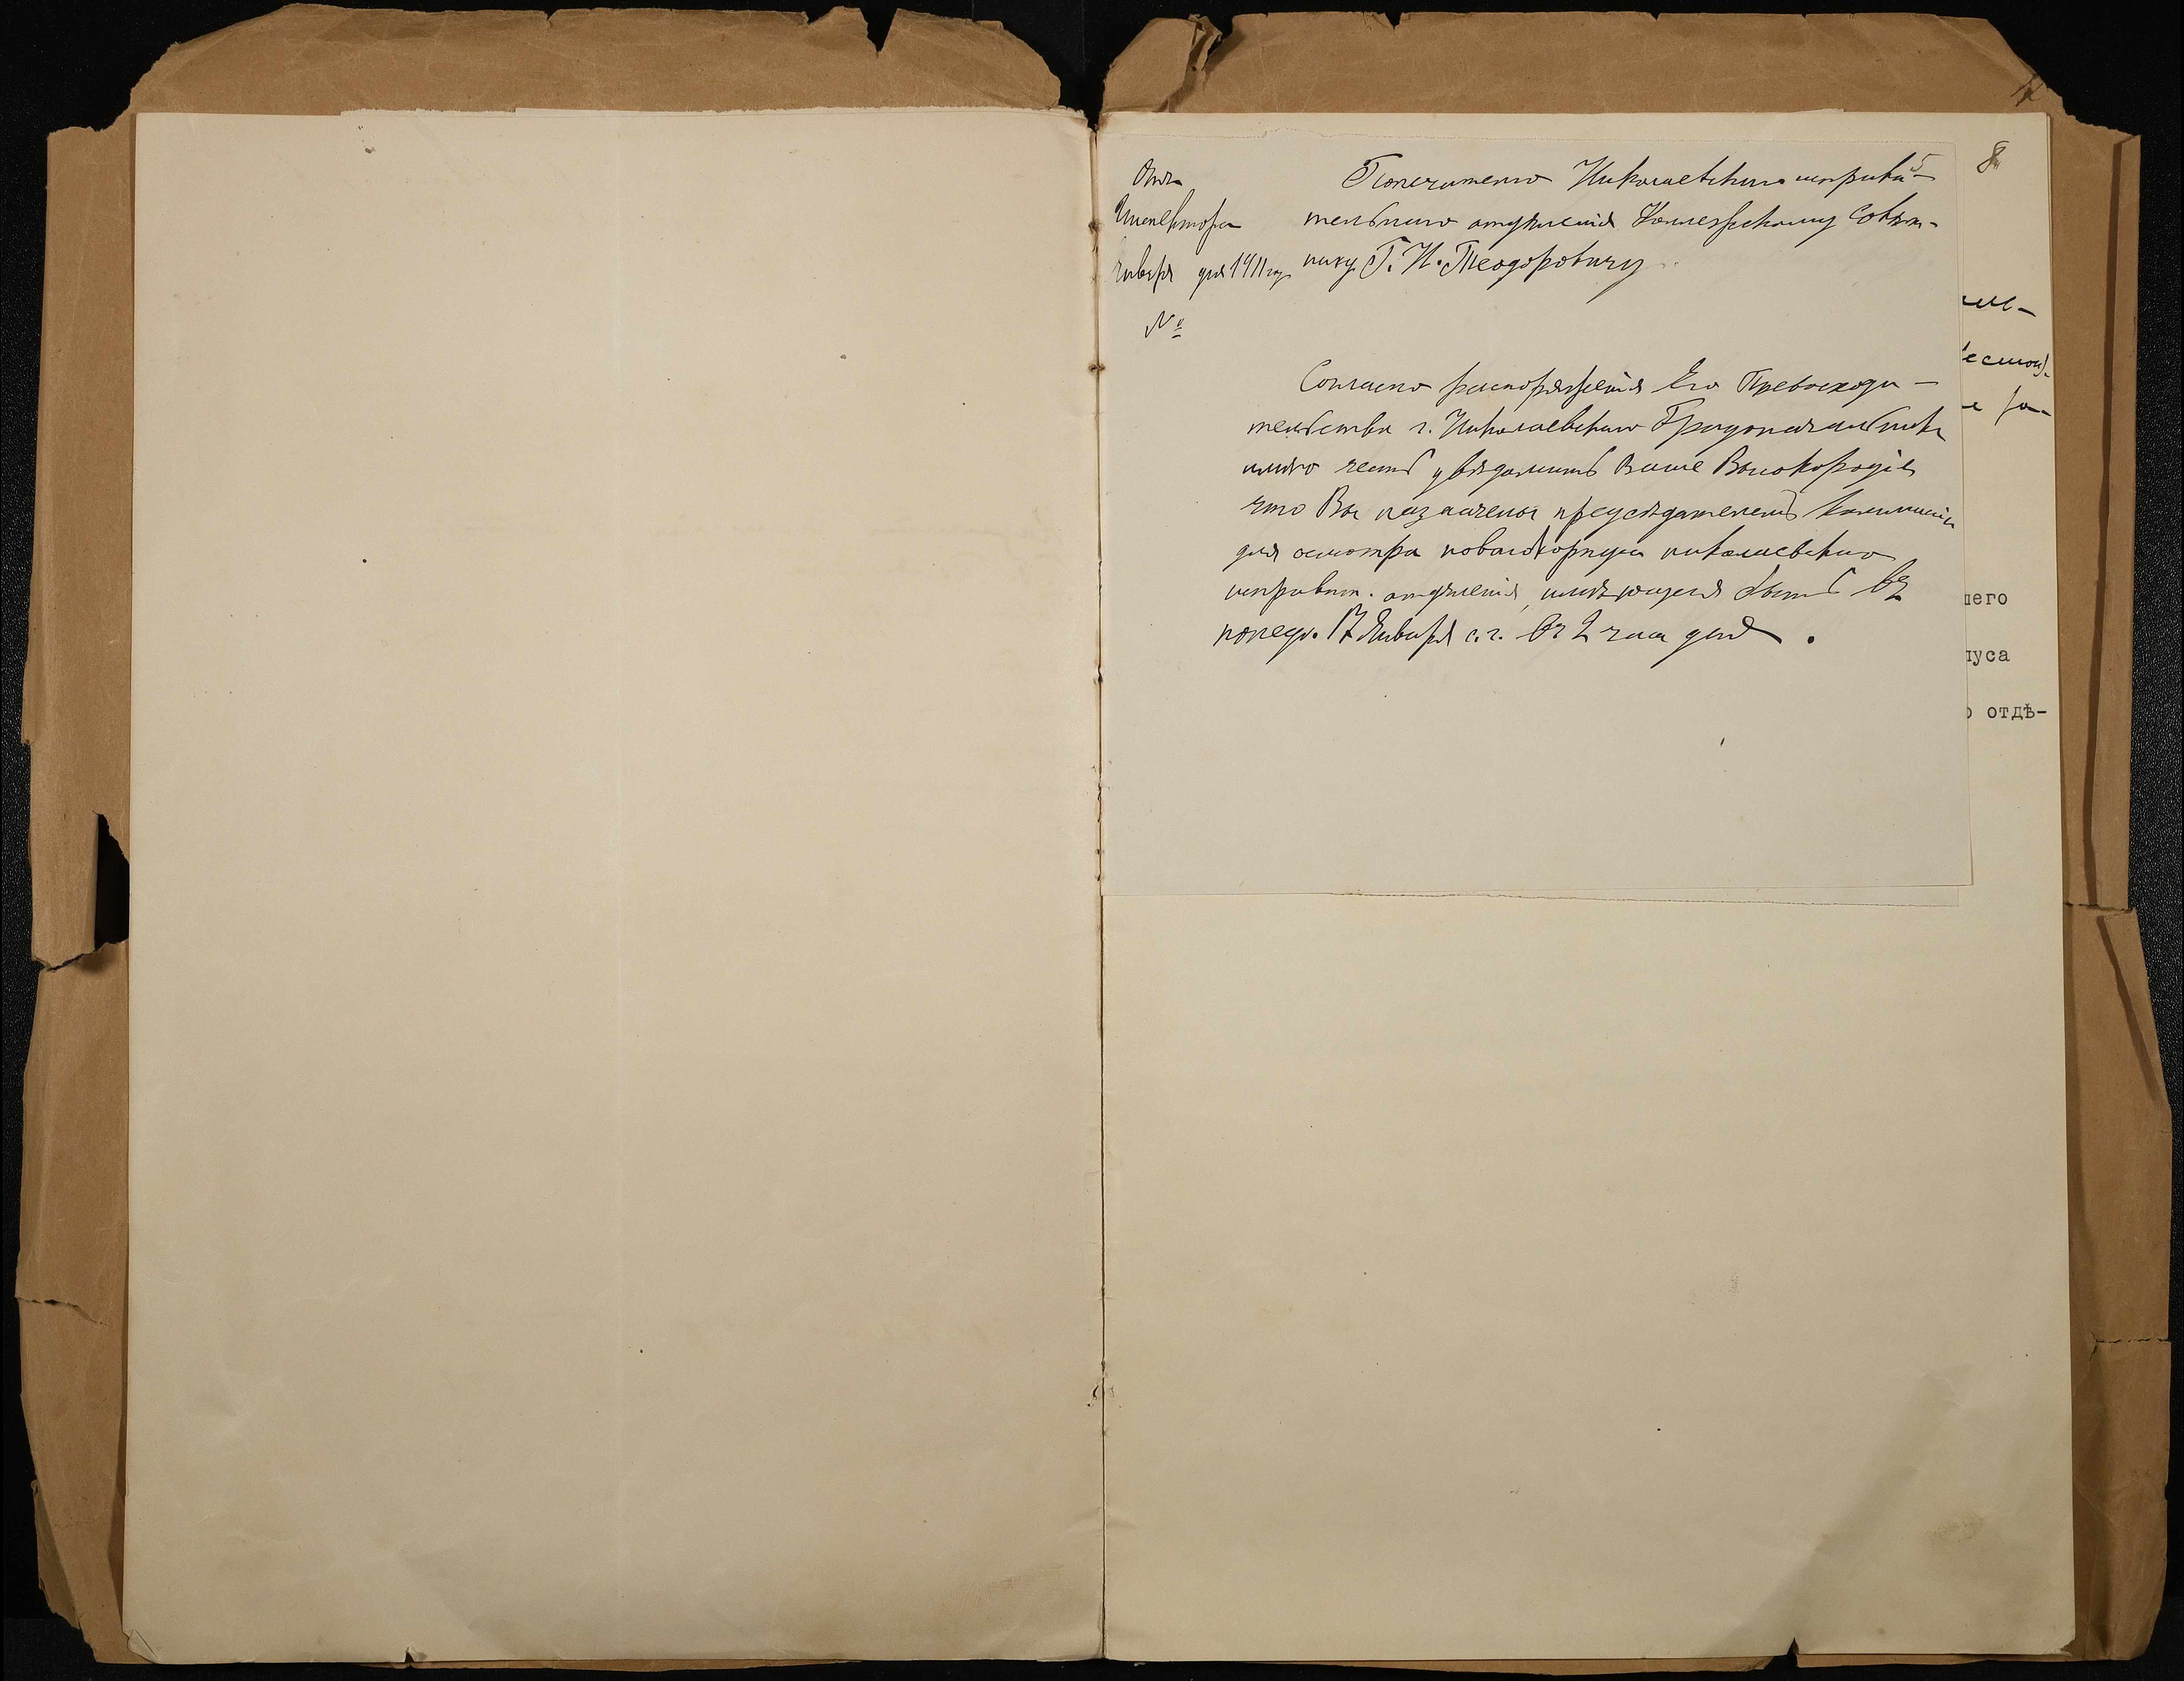 8
Отъ
Инспектора
Января дня 1911 г.
№
Попечителю Николаевскаго исправи-
тельнаго отдѣленія Коллежскому Совѣт-
нику Г. Н. Теодоровичу
Согласно распоряженія Его Превосходи-
тельства г. Николаевскаго Градоначальника
имѣю честь увѣдомить Ваше Высокородіе
что Вы назначены предсѣдателемъ Коммиссіи
для осмотра новаго корпуса николаевскаго
исправит. отдѣленія, имѣющагося быть въ
понед. 17 Января с.г. въ 2 часа дня.
щего
пуса
о отдѣ-